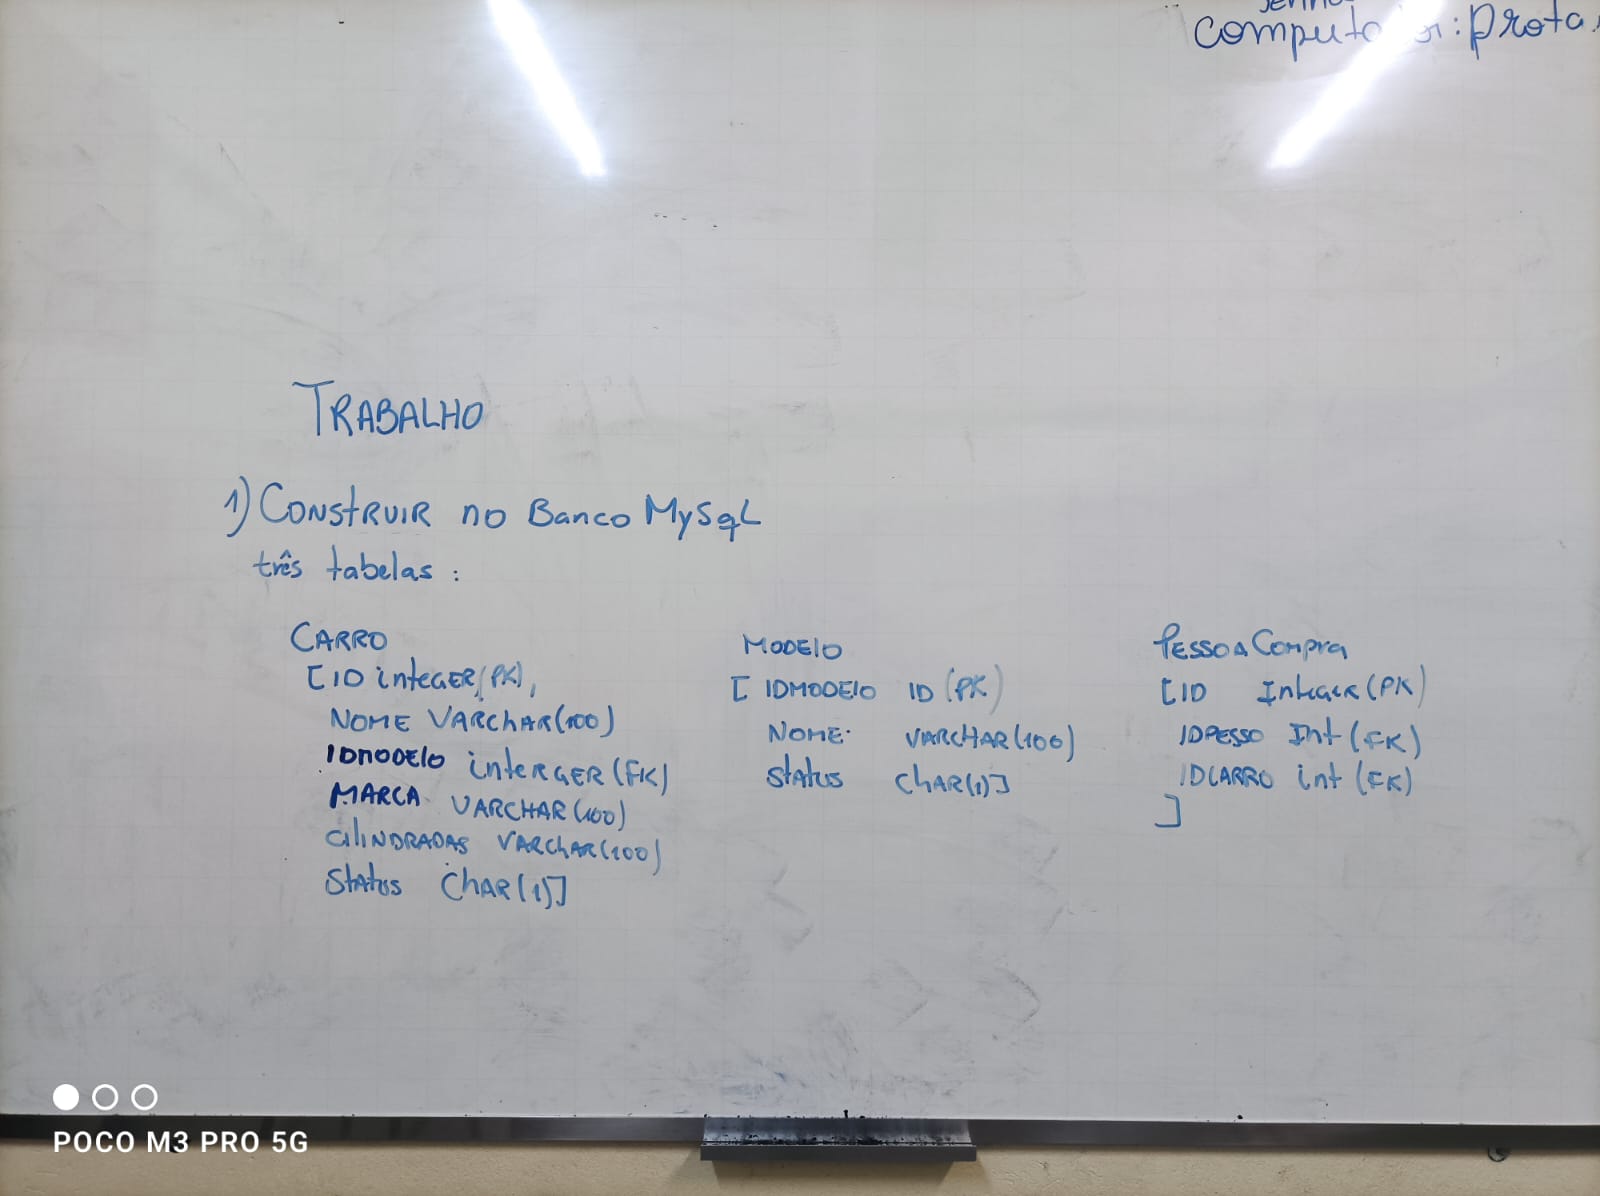 Computador: prota
TRABALHO
1) CONSTRUIR no Banco MySqL
três tabelas :
CARRO
[ID inteGER(PK),
NOME VARCHAR(100)
IDMODELO interGER(FK)
MARCA VARCHAR(100)
CILINDRADAS VARCHAR(100)
Status CHAR(1)]
MODELO
[ IDMODELO ID (PK)
NOME VARCHAR(100)
Status CHAR(1)]
PESSOA Compra
[ID Integer (PK)
IDPESSO Int (FK)
IDCARRO int (FK)
]
POCO M3 PRO 5G